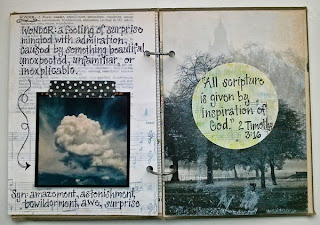 WONDER: a feeling of surprise
mingled with admiration,
caused by something beautiful,
unexpected, unfamiliar, or
inexplicable.
Syn: amazement, astonishment,
bewilderment, awe, surprise
"All scripture
is given by
inspiration of
God." 2 Timothy
3:16